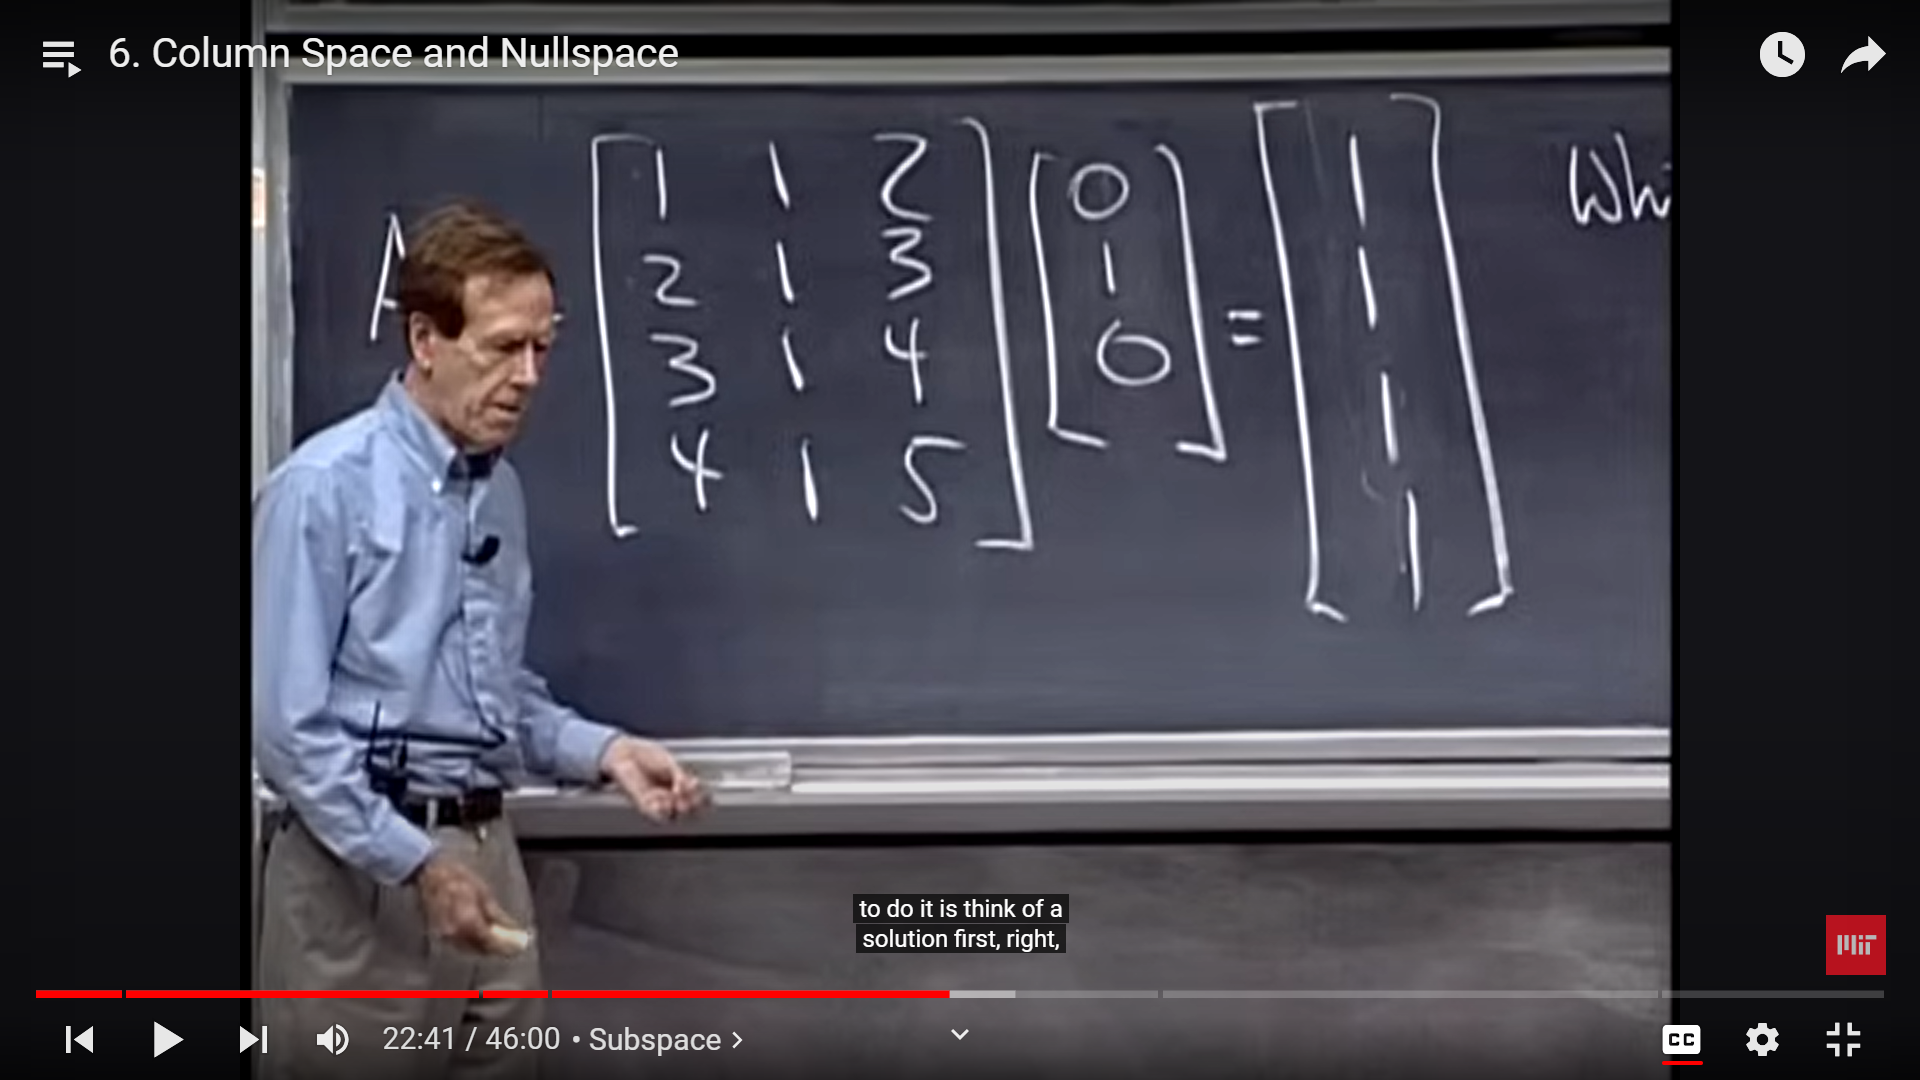 6. Column Space and Nullspace
A
1 1 2
2 1 3
3 1 4
4 1 5
0
1
0
=
1
1
1
1
Whi
to do it is think of a
solution first, right,
MIT
22:41 / 46:00 • Subspace >
CC